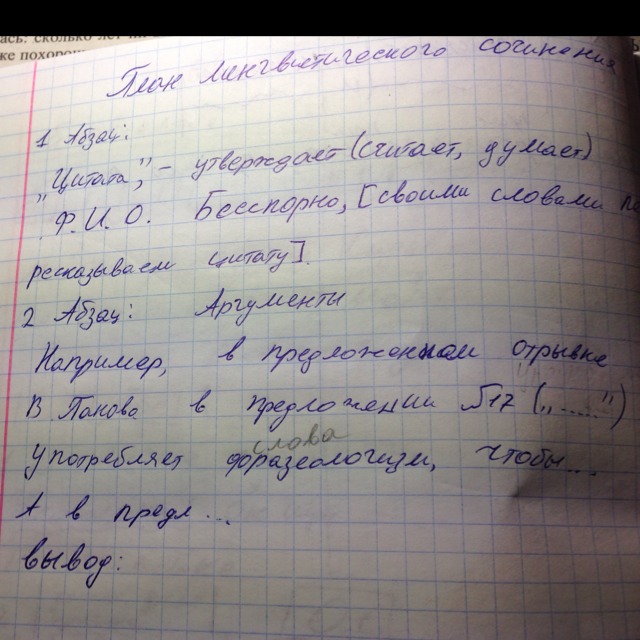 ась: сколько лет
же похорон
План лингвистического сочинения
1 Абзац:
"Цитата", - утверждает (считает, думает)
Ф.И.О. Бесспорно, [своими словами пе
ресказываем цитату].
2 Абзац: Аргументы
Например, в предложенном отрывке
В Панова в предложении №17 („......")
слова
употребляет фразеологизм, чтобы...
А в предл...
вывод: